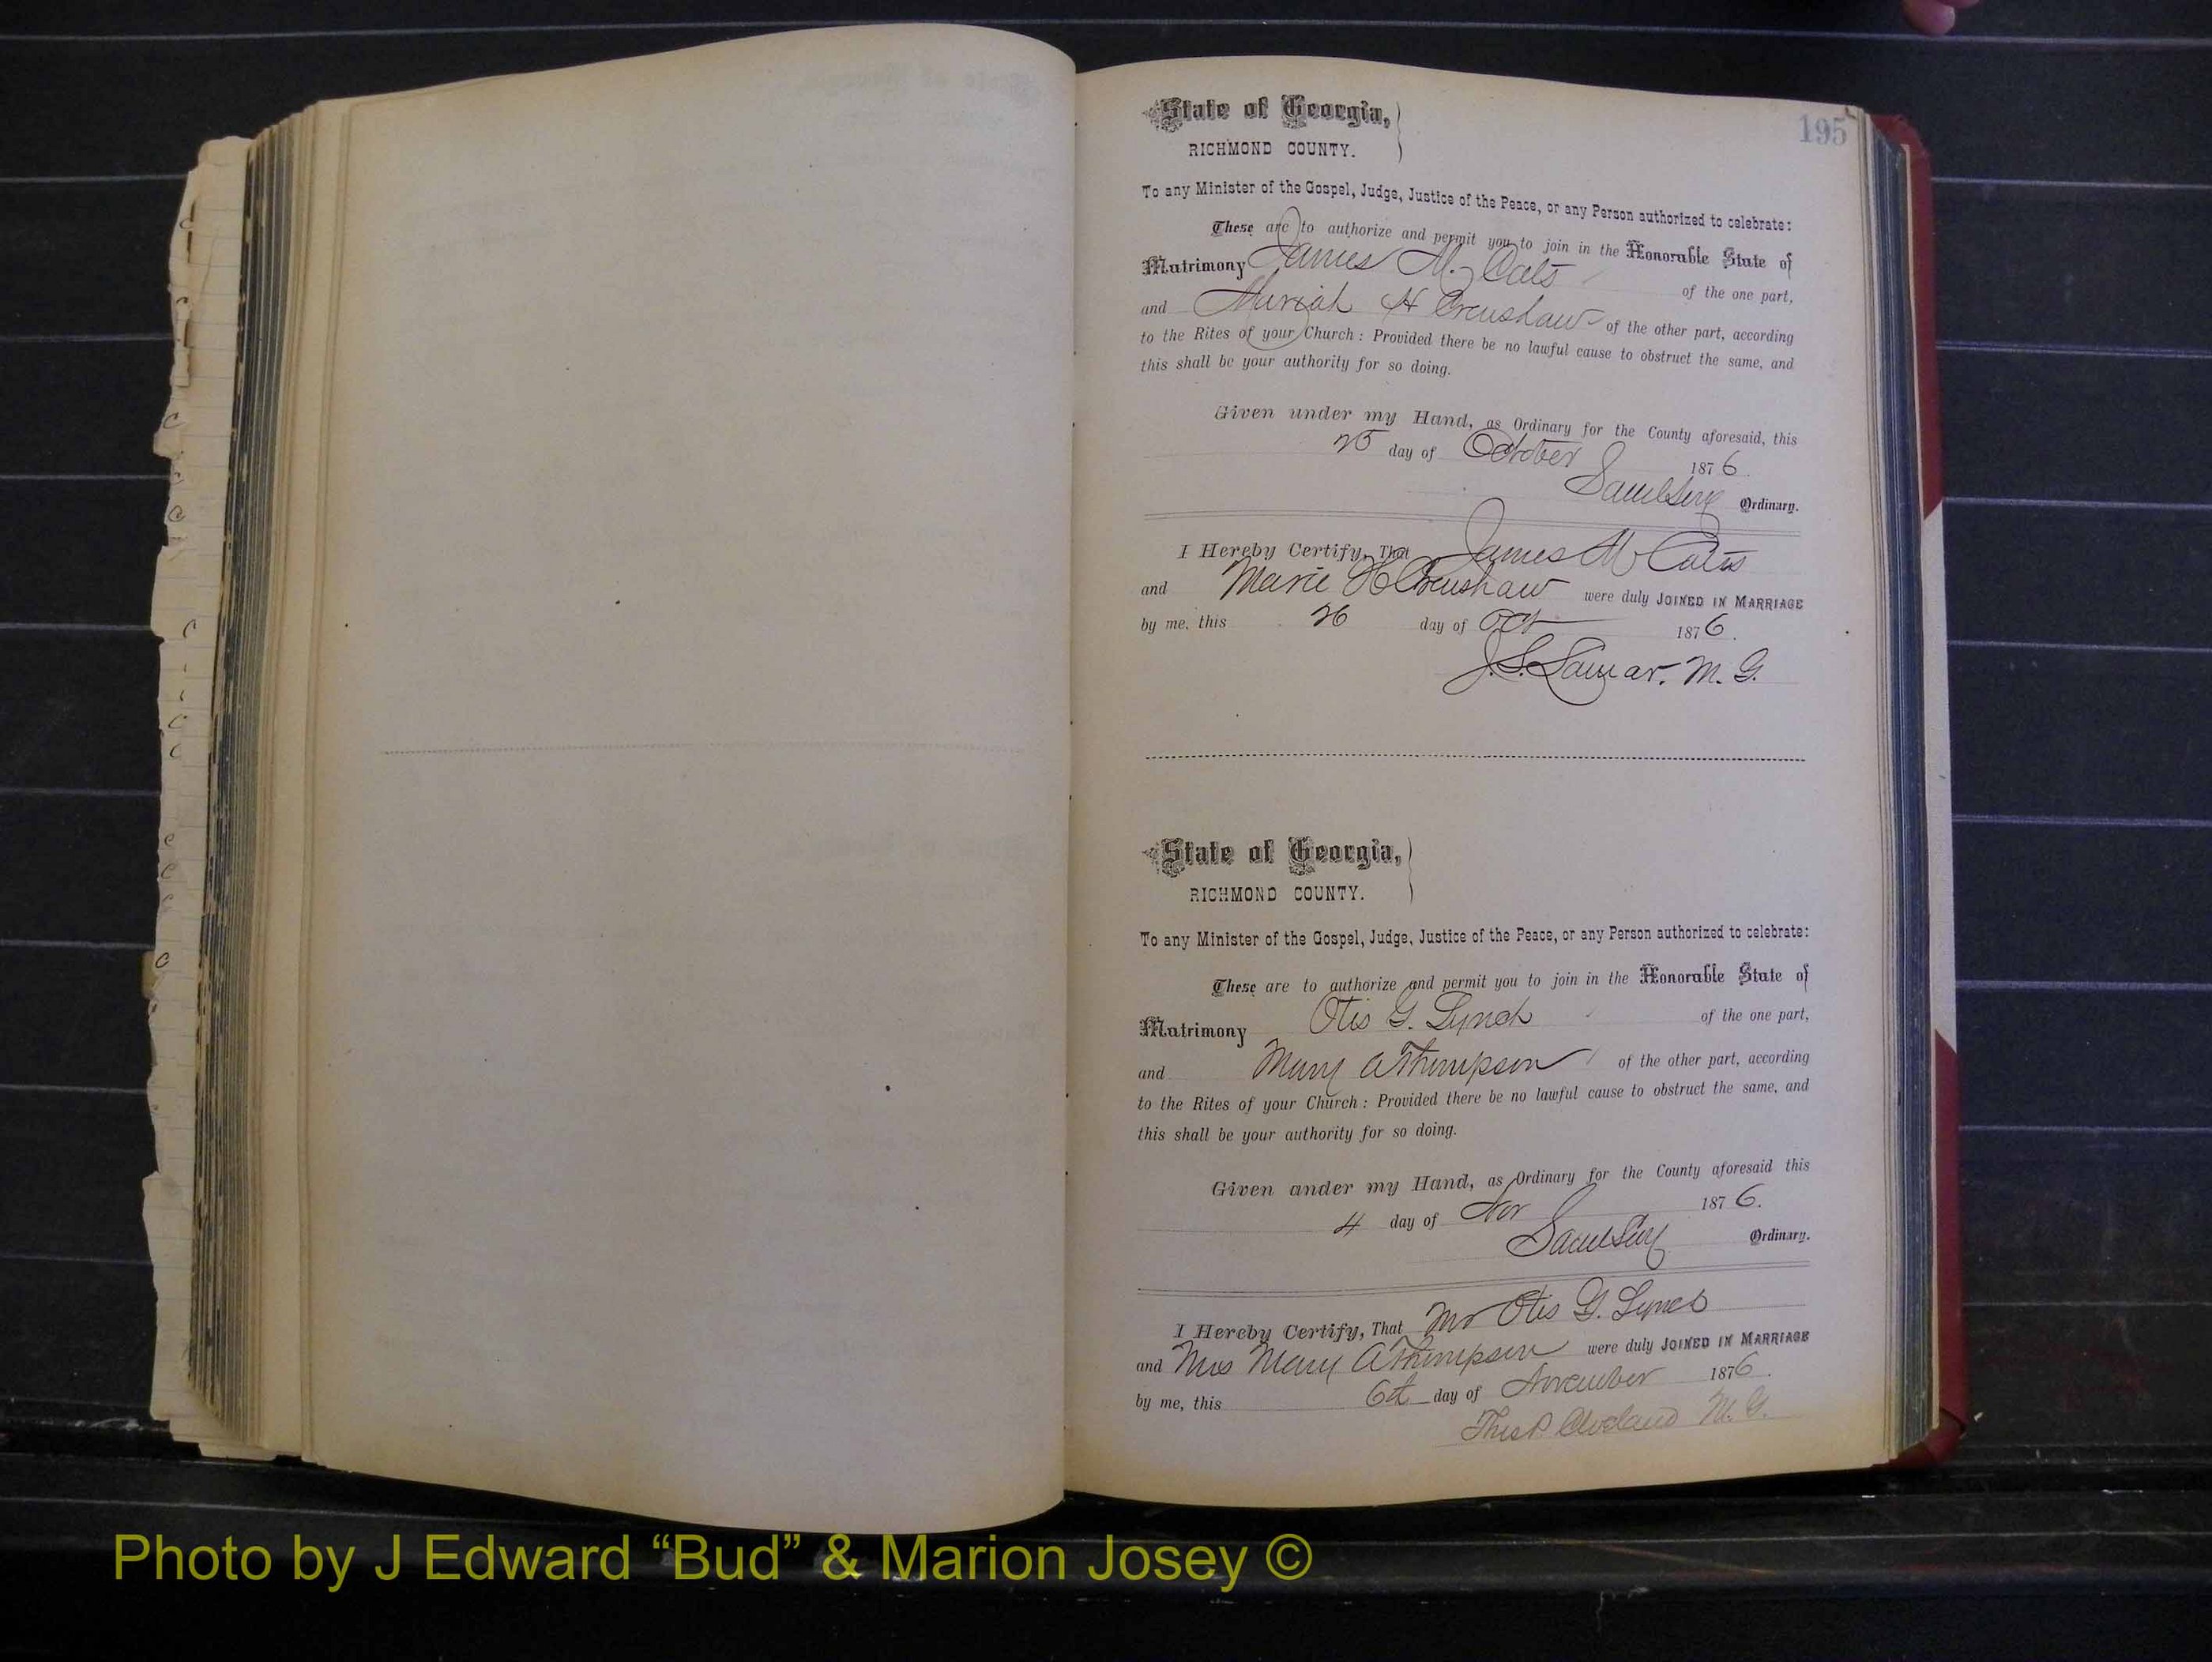 195
State of Georgia,
RICHMOND COUNTY.
To any Minister of the Gospel, Judge, Justice of the Peace, or any Person authorized to celebrate:
These are to authorize and permit you to join in the Honorable State of
Matrimony James M. Oats of the one part,
and Mariah H Crenshaw of the other part, according
to the Rites of your Church: Provided there be no lawful cause to obstruct the same, and
this shall be your authority for so doing.
Given under my Hand, as Ordinary for the County aforesaid, this
25 day of October 1876.
Saml Levy Ordinary.
I Hereby Certify, That James M Oats
and Marie H Crenshaw were duly JOINED IN MARRIAGE
by me, this 26 day of Oct 1876.
J. S. Lamar. M. G.
State of Georgia,
RICHMOND COUNTY.
To any Minister of the Gospel, Judge, Justice of the Peace, or any Person authorized to celebrate:
These are to authorize and permit you to join in the Honorable State of
Matrimony Otis G. Lynch of the one part,
and Mary A Thompson of the other part, according
to the Rites of your Church: Provided there be no lawful cause to obstruct the same, and
this shall be your authority for so doing.
Given under my Hand, as Ordinary for the County aforesaid this
4 day of Nov 1876.
Saml Levy Ordinary.
I Hereby Certify, That Mr Otis G. Lynch
and Mrs Mary A Thompson were duly JOINED IN MARRIAGE
by me, this 6th day of November 1876.
Thos P. Cleveland M. G.
Photo by J Edward “Bud” & Marion Josey ©